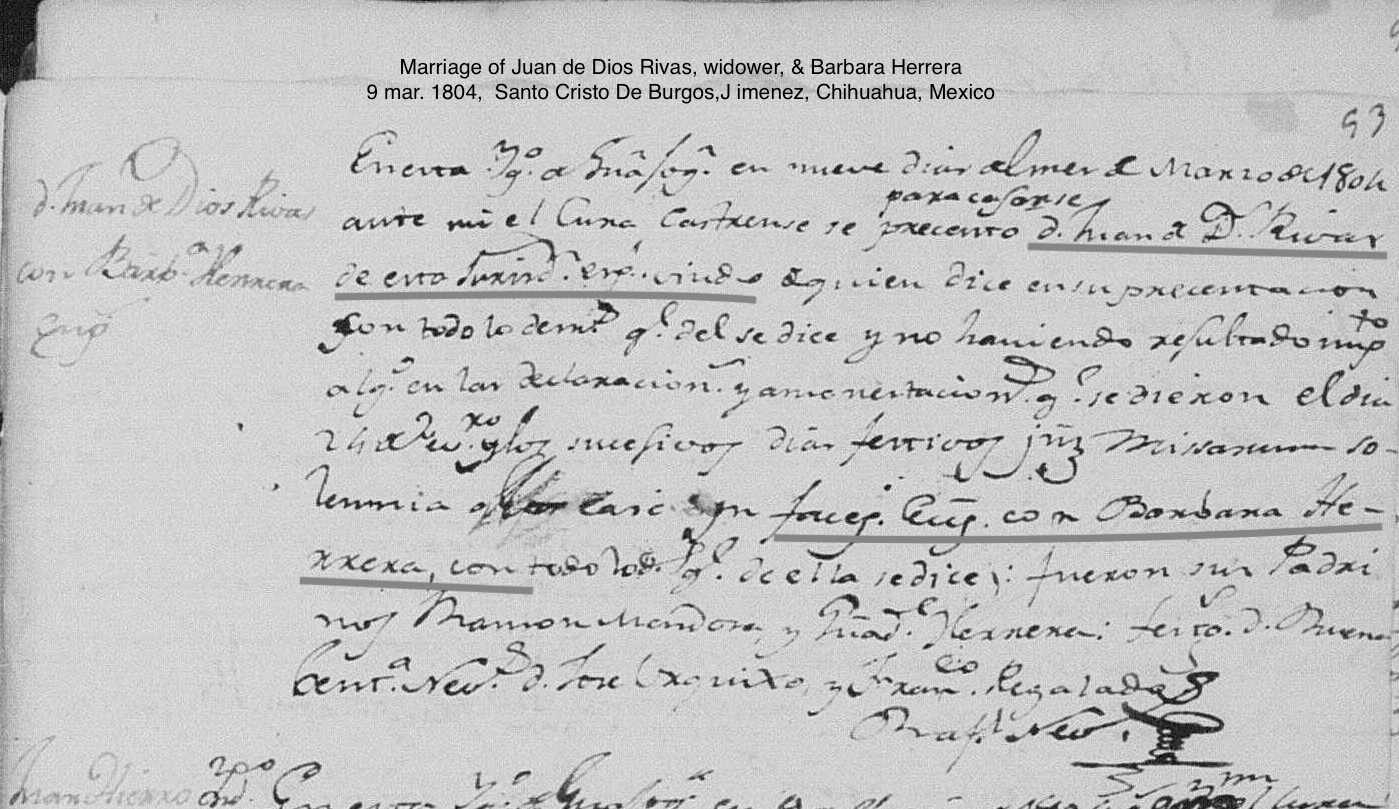 Marriage of Juan de Dios Rivas, widower, & Barbara Herrera
9 mar. 1804, Santo Cristo De Burgos,J imenez, Chihuahua, Mexico
93
d. Juan de Dios Rivas
con Barb.a Herrera
En esta Yg.a de en nueve dias del mes de Marzo de 1804
para casarse
ante mi el Cura Castrense se precento d. Juan de D.s Rivas
de esta Jurisd.n esp.l viudo de quien dice en su precentacion
con todo lo demas q.e del se dice y no haviendo resultado imp.to
alg.o en las declaracion.s y amonestacion.s q.e se dieron el dia
24 de y los sucesivos dias festivos Missarum so-
lemnia casé en facej. Eccj. con Barbara He-
rrera, con todo lo q.e de ella se dice: fueron sus Padri
nos Ramon Mendosa, y Guad.e Herrera: testo. d. Buena
bent.a Nev.s d. Jose Urquixo, y Fran.co Regalado
Raf.l Nev.s
Juan Hierro
En esta Yg.a de en